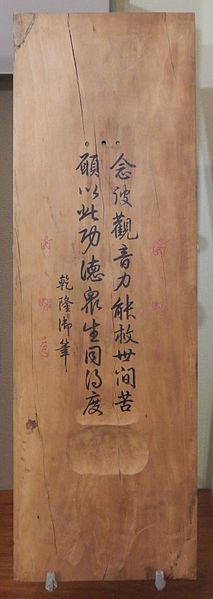 念彼觀音力能救世间苦
願以此功德衆生同得度
乾隆御筆